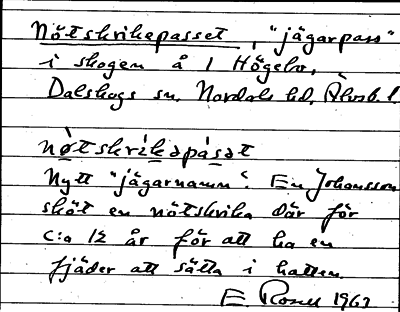 Nötskrikepasset, "jägarpass"
i skogen å 1 Högebo,
Dalskogs sn. Nordals hd. Älvsb. l.
nötskrikəpásət
Nytt "jägarnamn". En Johansson
sköt en nötskrika där för
c:a 12 år för att ha en
fjäder att sätta i hatten.
E. 1967